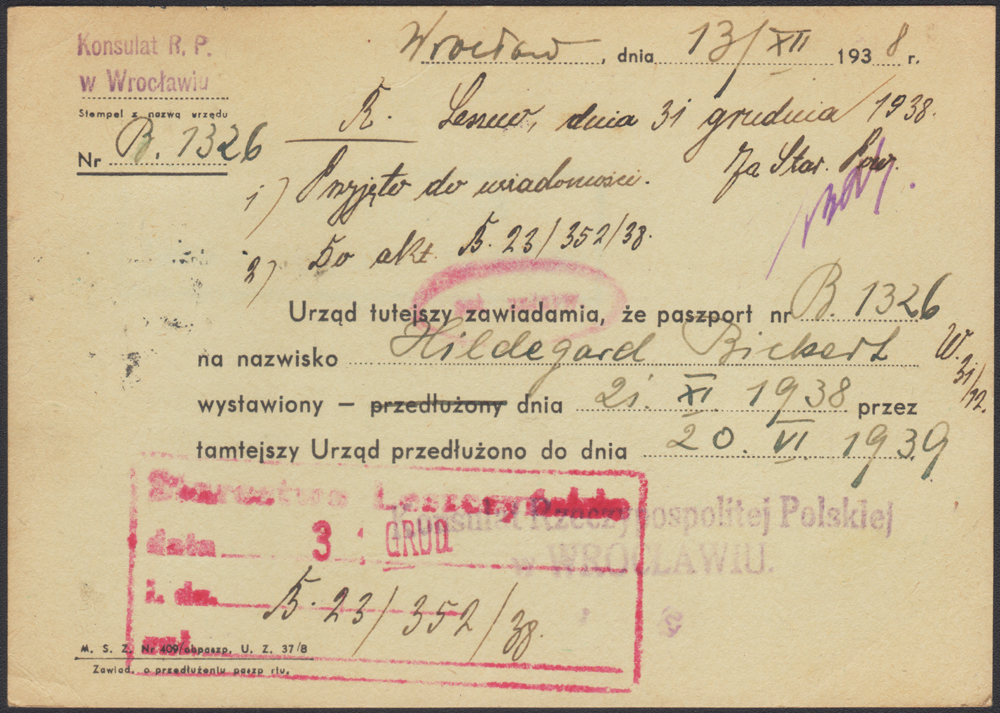 Konsulat R. P.
w Wrocławiu
Stempel z nazwą urzędu
Nr B. 1326
Wrocław, dnia 13/XII 1938 r.
R. Leszno, dnia 31 grudnia 1938.
1) Przyjęto do wiadomości. Za Star. Pow.
2) Do akt. B. 23/352/38.
Urząd tutejszy zawiadamia, że paszport nr B. 1326
na nazwisko Hildegard Bickert
W. 31/12.
wystawiony – przedłużony dnia 21. XI. 1938 przez
tamtejszy Urząd przedłużono do dnia 20. VI. 1939
Starostwo Leszczyńskie
Konsulat Rzeczypospolitej Polskiej
w WROCŁAWIU.
data 3 GRUD
l. dz. B. 23/352/38.
zał.
M. S. Z. Nr 409/obpaszp, U. Z. 37/8
Zawiad. o przedłużeniu paszp rtu,